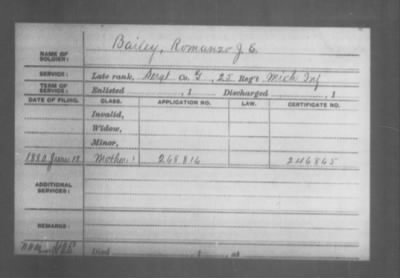 NAME OF SOLDIER: Bailey, Romanzo J. C.
SERVICE: Late rank, Sergt Co. G, 25 Reg't Mich Inf
TERM OF SERVICE: Enlisted , 1 Discharged , 1
DATE OF FILING. CLASS. APPLICATION NO. LAW. CERTIFICATE NO.
Invalid,
Widow,
Minor,
1880 June 18 Mother 268816 246865
ADDITIONAL SERVICES:
REMARKS:
Died , 1 , at